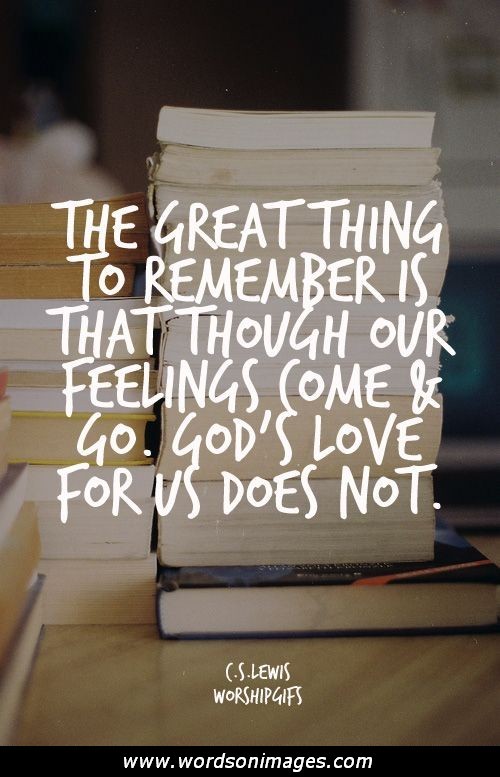 THE GREAT THING
TO REMEMBER IS
THAT THOUGH OUR
FEELINGS COME &
GO. GOD'S LOVE
FOR US DOES NOT.
C.S.LEWIS
WORSHIPGIFS
www.wordsonimages.com